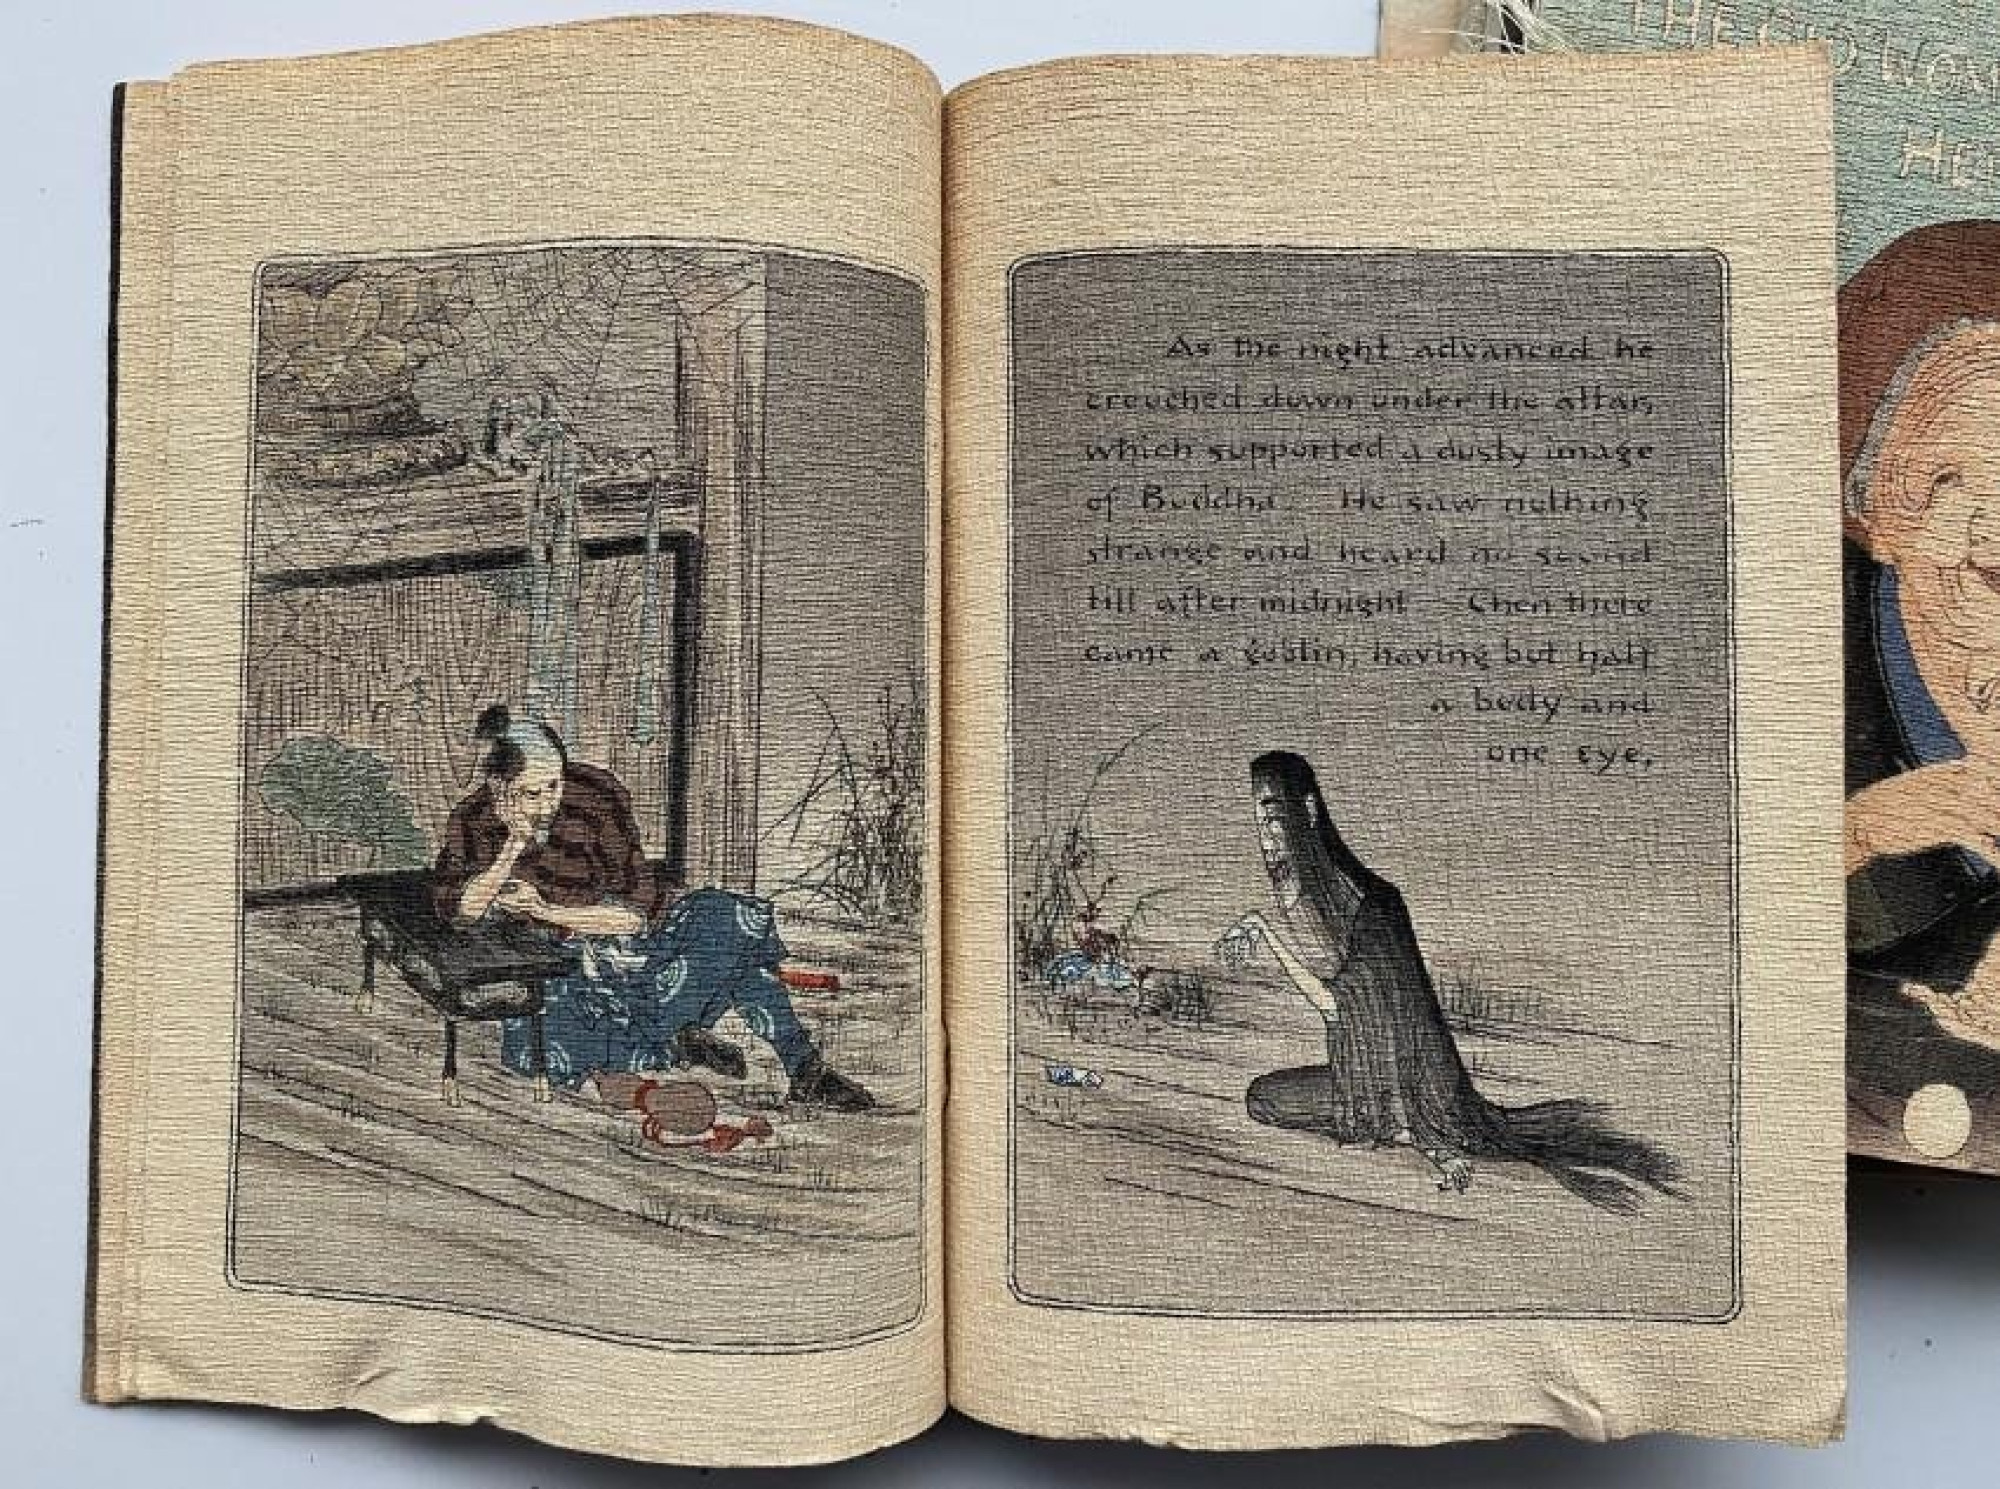 As the night advanced he
crouched down under the altar,
which supported a dusty image
of Buddha. He saw nothing
strange and heard no sound
till after midnight. Then there
came a goblin, having but half
a body and
one eye,
THE OLD WOM
HE